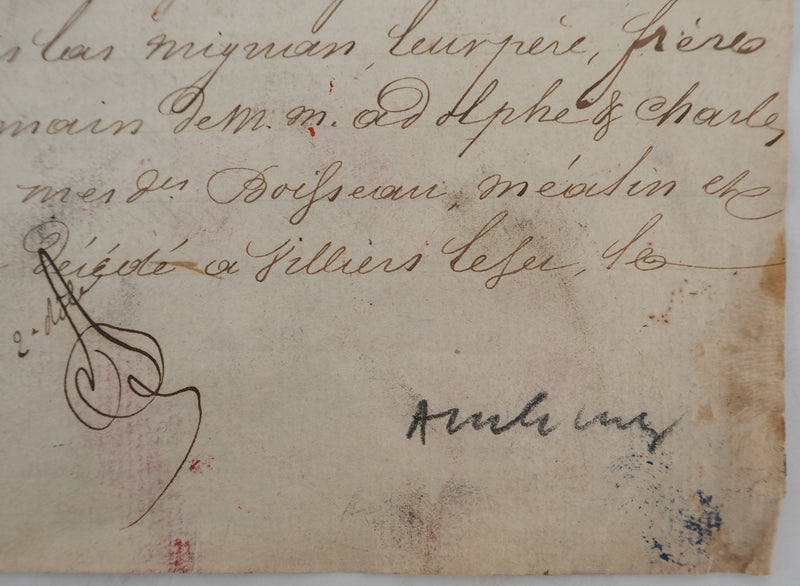 las mignan, leur père, frères
main de M. M. adolphe & Charles
mes des Boisseau, méatin et
décédé à Villiers le sec, le
2e rôle